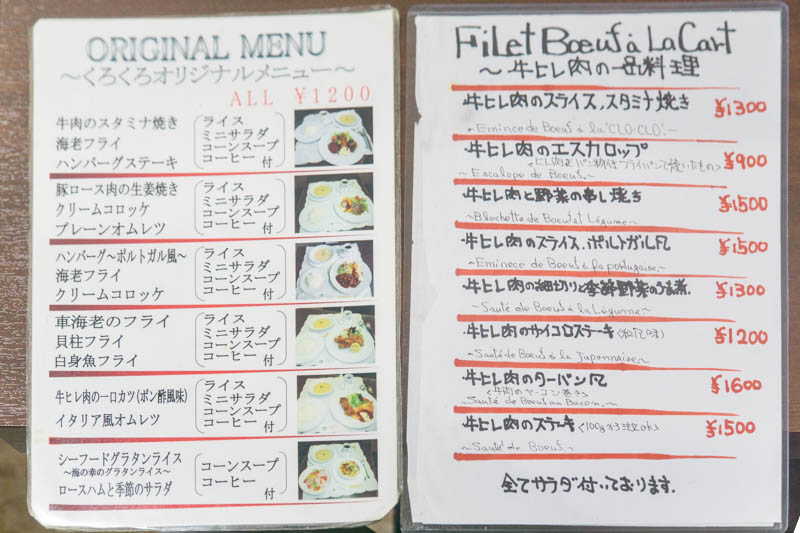 ORIGINAL MENU
～くろくろオリジナルメニュー～
ALL ¥1200
牛肉のスタミナ焼き
海老フライ
ハンバーグステーキ
ライス
ミニサラダ
コーンスープ
コーヒー 付
豚ロース肉の生姜焼き
クリームコロッケ
プレーンオムレツ
ライス
ミニサラダ
コーンスープ
コーヒー 付
ハンバーグ～ポルトガル風～
海老フライ
クリームコロッケ
ライス
ミニサラダ
コーンスープ
コーヒー 付
車海老のフライ
貝柱フライ
白身魚フライ
ライス
ミニサラダ
コーンスープ
コーヒー 付
牛ヒレ肉の一口カツ(ポン酢風味)
イタリア風オムレツ
ライス
ミニサラダ
コーンスープ
コーヒー 付
シーフードグラタンライス
～海の幸のグラタンライス～
ロースハムと季節のサラダ
コーンスープ
コーヒー
付
Filet Bœuf à La Cart
～牛ヒレ肉の一品料理
・牛ヒレ肉のスライス,スタミナ焼き ¥1300
～Emince de Bœuf à la "CLO-CLO".～
・牛ヒレ肉のエスカロップ ¥900
～Escalope de Bœuf.～
・牛ヒレ肉と野菜の串し焼き ¥1500
～Blochette de Bœuf et Légume～
・牛ヒレ肉のスライス,ポルトガル風 ¥1500
～Eminece de Bœuf à la portugaise.～
・牛ヒレ肉の細切りと季節野菜のうま煮. ¥1300
～Sauté de Bœuf à la Légume～
・牛ヒレ肉のサイコロステーキ(和風味) ¥1200
～Sauté de Bœuf à la Japonnaise.～
・牛ヒレ肉のターバン風 ¥1600
<牛肉のベーコン巻き>
Sauté de Bœuf au Bacon.～
・牛ヒレ肉のステーキ<100gから注文ok> ¥1500
～Sauté de Bœuf.～
全てサラダ付いております.